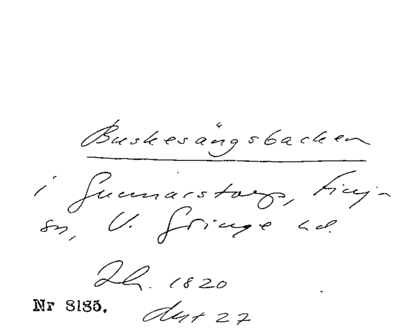 Buskesängsbacken
i Gunnarstorp, Finja
sn, V. Göinge hd.
Lh. 1820
Nr 8185. akt 27